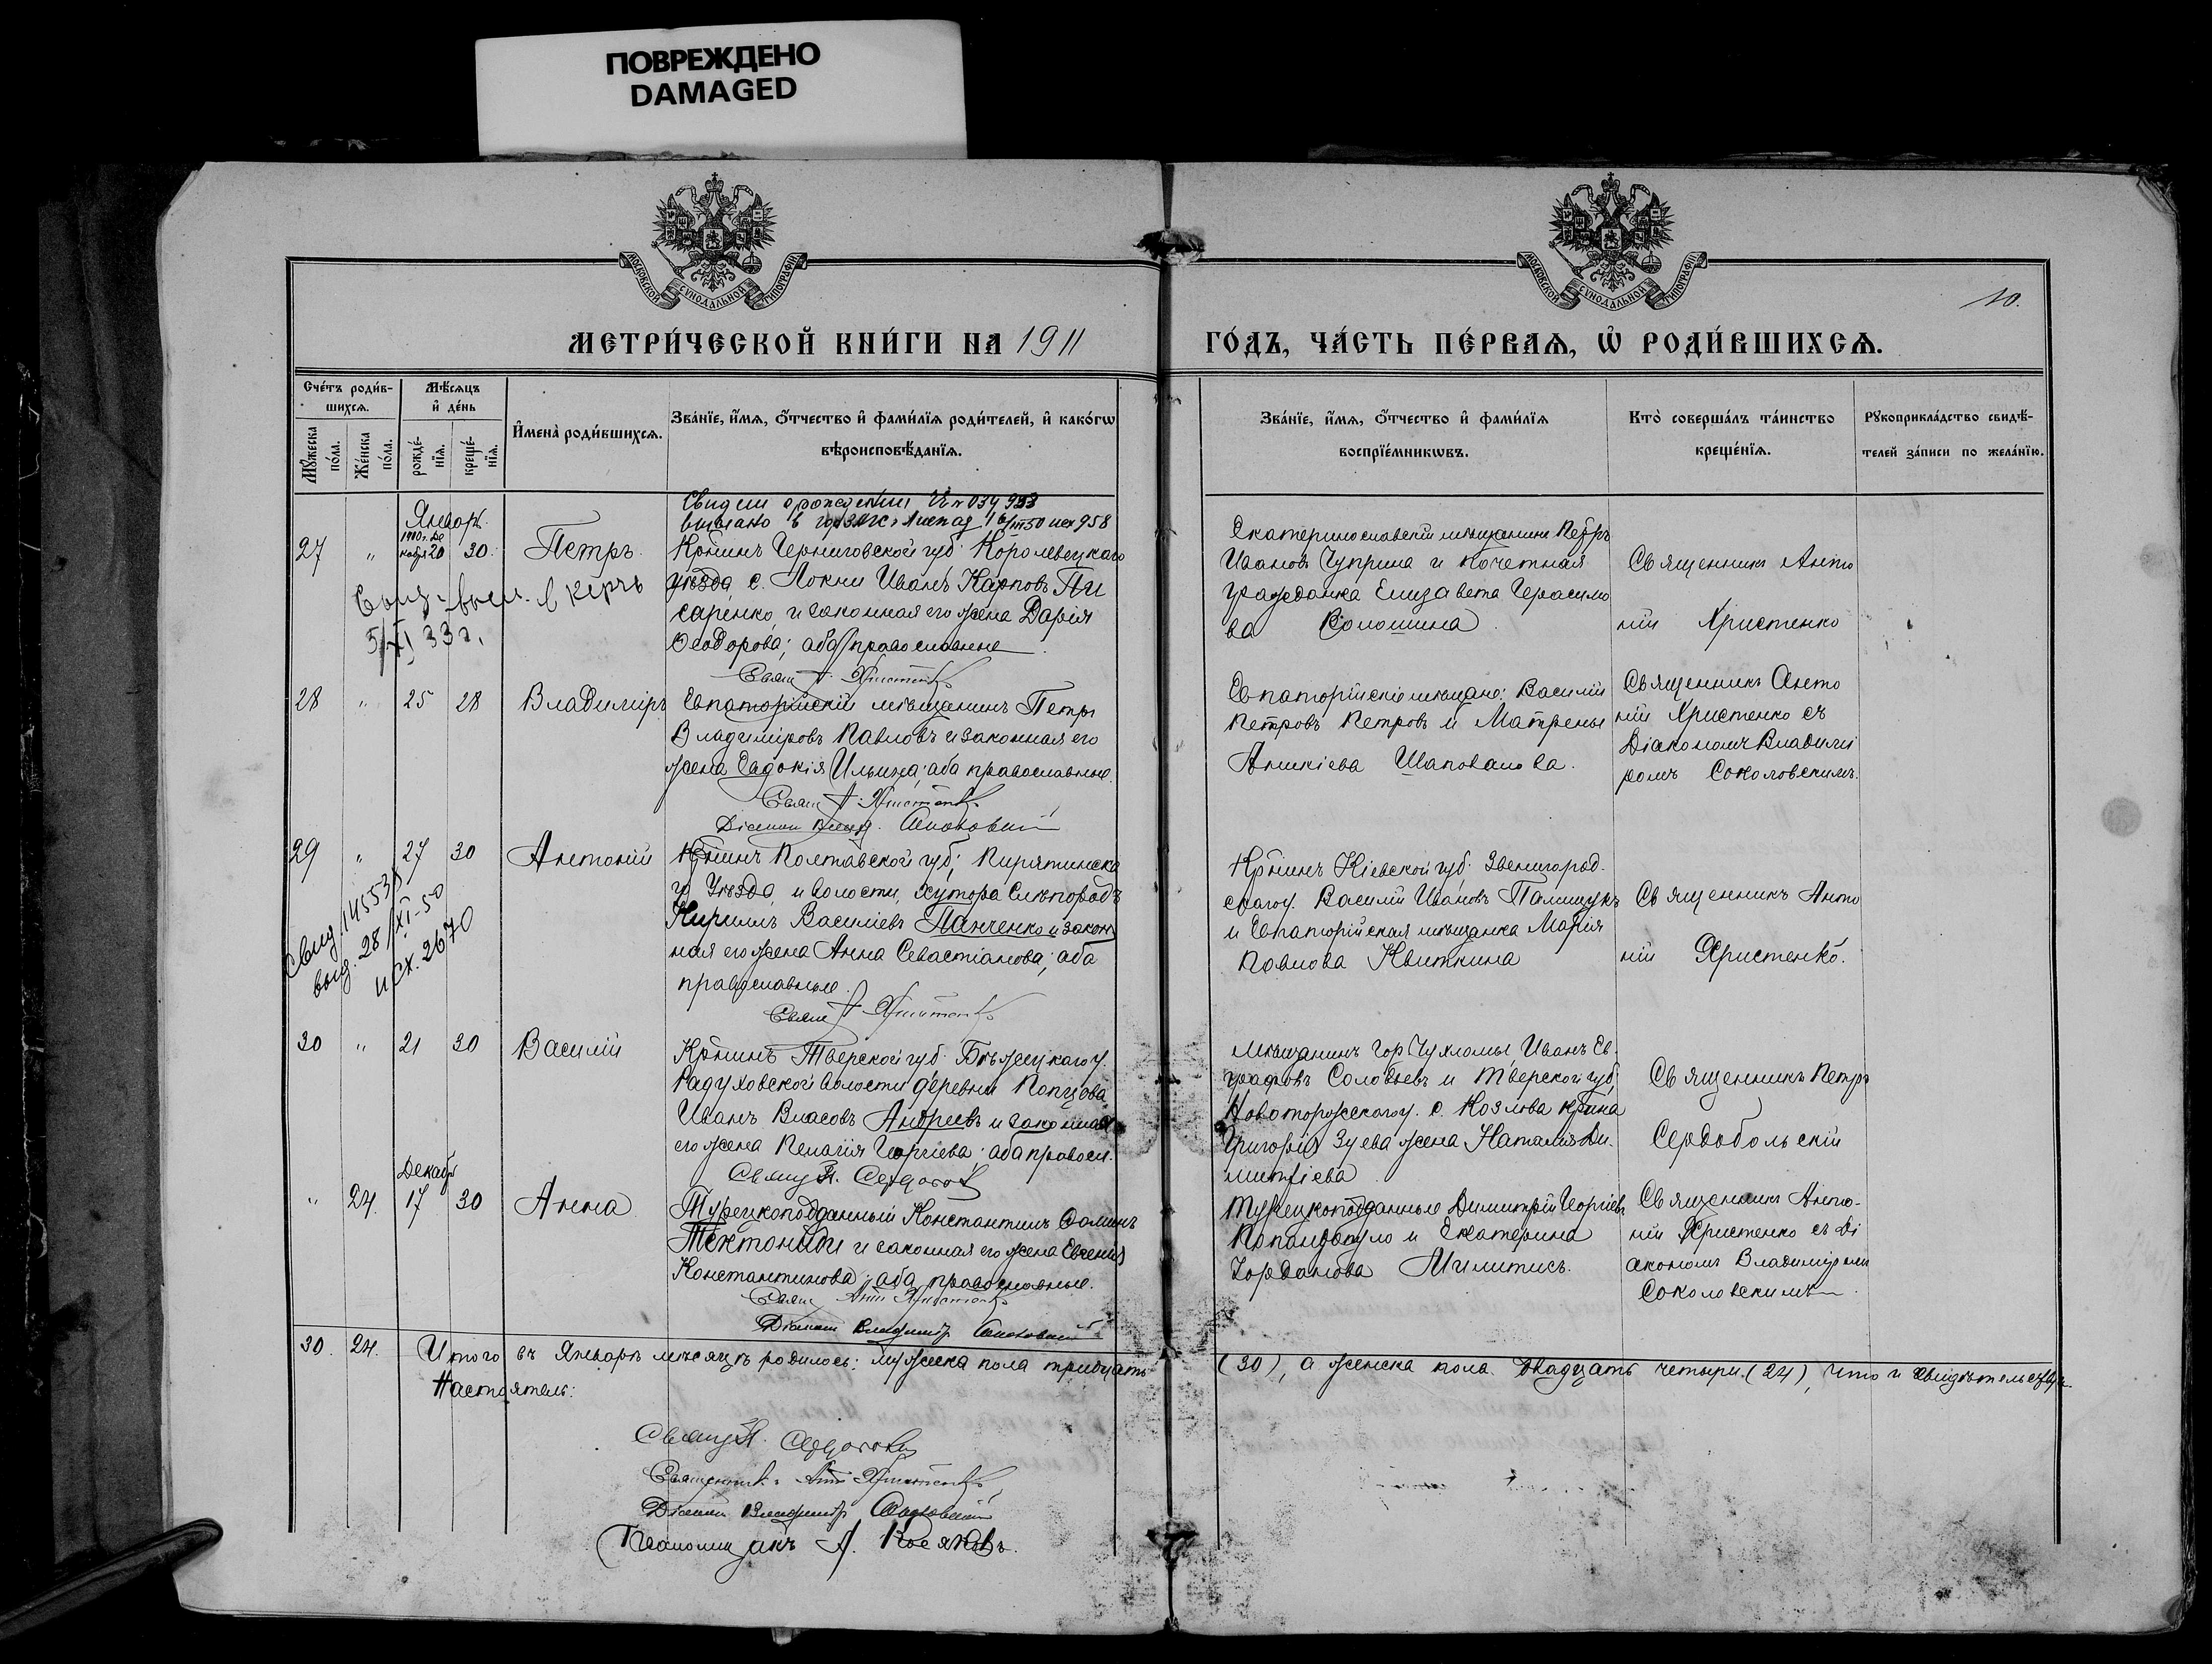 ПОВРЕЖДЕНО
DAMAGED
МОСКОВСКОЙ СѴНОДАЛЬНОЙ ТИПОГРАФІИ
МОСКОВСКОЙ СѴНОДАЛЬНОЙ ТИПОГРАФІИ
10.
МЕТРИ́ЧЕСКОЙ КНИ́ГИ НА 1911
ГО́ДЪ, ЧА́СТЬ ПЕ́РВАѦ, Ѡ҆ РОДИ́ВШИХСѦ.
Сче́тъ роди́в-
шихсѧ.
Мѣ́сѧцъ
и҆ де́нь
Мꙋ́жеска по́ла.
Же́нска по́ла.
рожде́-
нїѧ.
креще́-
нїѧ.
И҆мена̀ роди́вшихсѧ.
Зва́нїе, и҆́мѧ, ѻ҆́тчество и҆ фами́лїѧ роди́телей, и҆ како́гѡ
вѣроисповѣ́данїѧ.
Зва́нїе, и҆́мѧ, ѻ҆́тчество и҆ фами́лїѧ
воспрїе́мникѡвъ.
Кто̀ соверша́лъ та́инство
креще́нїѧ.
Рꙋкоприкла́дство свидѣ́-
телей за́писи по жела́нїю.
выслано в гор ЗАГС
958
Январь
1910 г. де
кабря 20
27 " 30. Петръ.
Кр-нинъ Черниговской губ. Королевецкаго
уѣзда, с. Локни Иванъ Карповъ Пи
саренко, и законная его жена Дарія
Ѳеодорова; оба православные
Свящ. А. Христенко
Свид. высл. в Керчь
5/XI 33 г.
Екатеринославскій мѣщанинъ Петръ
Ивановъ Чуприна и почетная
гражданка Елизавета Герасимо
ва Солошина.
Священникъ Анто
ній Христенко
28 " 25 28 Владиміръ
Евпаторійскій мѣщанинъ Петръ
Владиміровъ Павловъ и законная его
жена Евдокія Ильина; оба православные.
Свящ. А. Христенко
Діаконъ Влад. Соколовскій
Евпаторійскіе мѣщане: Василій
Петровъ Петровъ и Матрены
Шаповалова.
Священникъ Анто
ній Христенко съ
Діакономъ Владимі
ромъ Соколовскимъ.
29 " 27 30 Антоній
Кр-нинъ Полтавской губ; Пирятинска
го уѣзда, и волости, хутора Слѣпородъ
Кириллъ Василіевъ Панченко и закон
ная его жена Анна Севастіанова; оба
православные.
Свящ. А. Христенко
Свид. 145535
выд. 28/XI-50
исх. 2670
Кр-нинъ Кіевской губ. Звенигород-
скаго у. Василій Ивановъ Палищукъ
и Евпаторійская мѣщанка Марія
Павлова Квиткина
Священникъ Анто
ній Христенко.
30 " 21 30 Василій
Кр-нинъ Тверской губ. Бѣжецкаго у.
Радуховской волости деревни Попцова
Иванъ Власовъ Андреевъ и законная
его жена Пелагія Георгіева; оба правосл.
Свящ. П. Сердобол
Мѣщанинъ гор Чухломы Иванъ Ев-
графовъ Соловьевъ и Тверской губ
Новоторжскаго у. с. Козлова кр-нина
Григорія Зуева жена Наталія Ди-
митріева
Священникъ Петръ
Сердобольскій
Декабр
" 24. 17 30 Анна
Турецкоподданный Константинъ Ѳоминъ
Тектониди и законная его жена Евгенія
Константинова; оба православные.
Свящ Ант Христенко
Діаконъ Владиміръ Соколовскій
Турецкоподданные Димитрій Георгіевъ
Попандопуло и Екатерина
Іорданова Милитись.
Священникъ Анто-
ній Христенко съ Ді
акономъ Владиміромъ
Соколовскимъ
30. 24. Итого въ Январѣ мѣсяцѣ родилось: мужеска пола тридцать (30), а женска пола двадцать четыри (24), что и свидѣтельству
Настоятель:
Свящ П. Сердобол
Священникъ Ант Христенко
Діаконъ Владиміръ Соколовскій
Псаломщикъ А. Косяковъ.